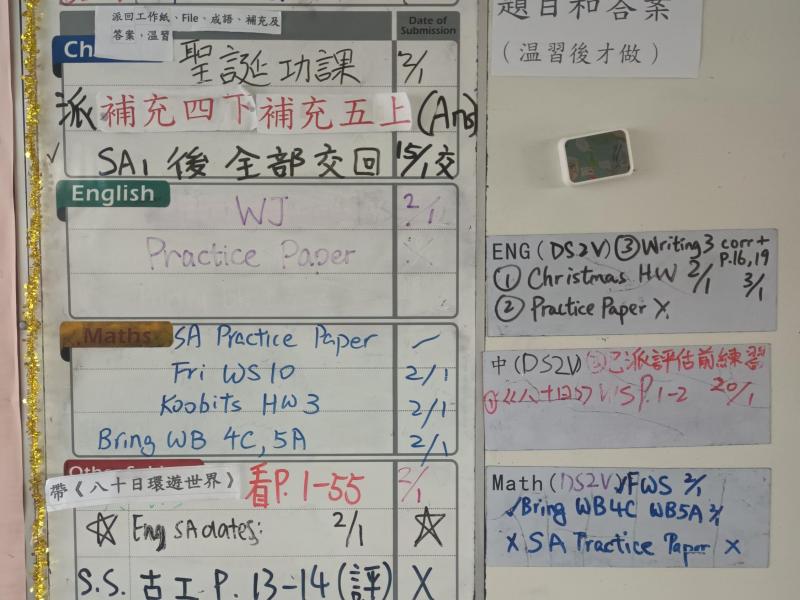 派回工作紙、File、成語、補充及
答案，温習
Date of
Submission
Ch
聖誕功課 2/1
派補充四下補充五上(Ans)
✓ SA1後全部交回 15/1交
English
WJ 2/1
Practice Paper X
Maths SA Practice Paper
Fri WS 10 2/1
Koobits HW 3 2/1
Bring WB 4C, 5A 2/1
帶《八十日環遊世界》看P. 1-55 2/1
☆ Eng SA dates: 2/1 ☆
S.S. 古工 P. 13-14 (評) X
題目和答案
（温習後才做）
ENG (DS2V) ③ Writing 3 corr +
P.16, 19
① Christmas HW 2/1 3/1
② Practice Paper X
中 (DS2V) 已派評估前練習
① WS P. 1-2 20/1
Math (DS2V) ✓ FWS 2/1
✓ Bring WB4C WB5A 2/1
X SA Practice Paper X